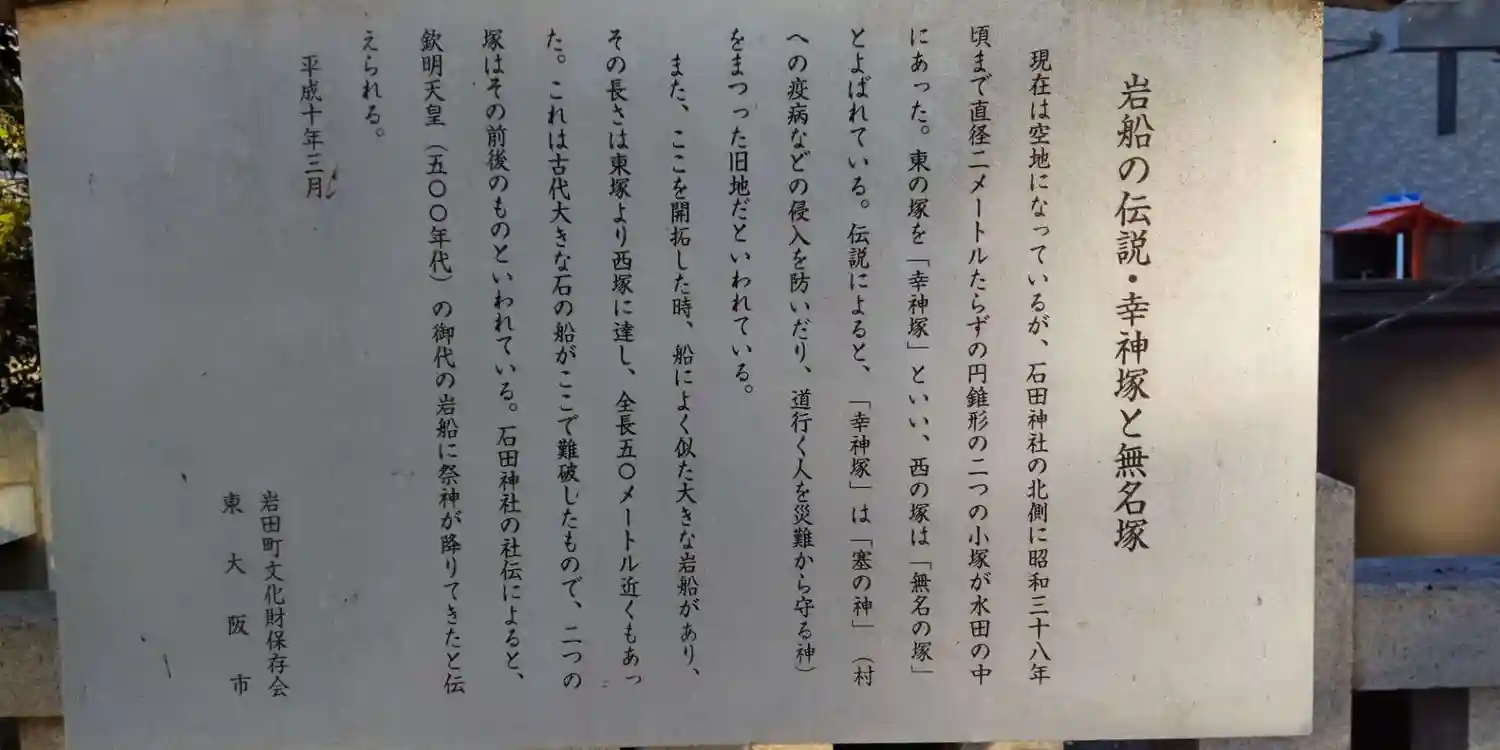 岩船の伝説・幸神塚と無名塚
現在は空地になっているが、石田神社の北側に昭和三十八年
頃まで直径二メートルたらずの円錐形の二つの小塚が水田の中
にあった。東の塚を「幸神塚」といい、西の塚は「無名の塚」
とよばれている。伝説によると、「幸神塚」は「塞の神」（村
への疫病などの侵入を防いだり、道行く人を災難から守る神）
をまつった旧地だといわれている。
また、ここを開拓した時、船によく似た大きな岩船があり、
その長さは東塚より西塚に達し、全長五〇メートル近くもあっ
た。これは古代大きな石の船がここで難破したもので、二つの
塚はその前後のものといわれている。石田神社の社伝によると、
欽明天皇（五〇〇年代）の御代の岩船に祭神が降りてきたと伝
えられる。
平成十年三月
岩田町文化財保存会
東大阪市